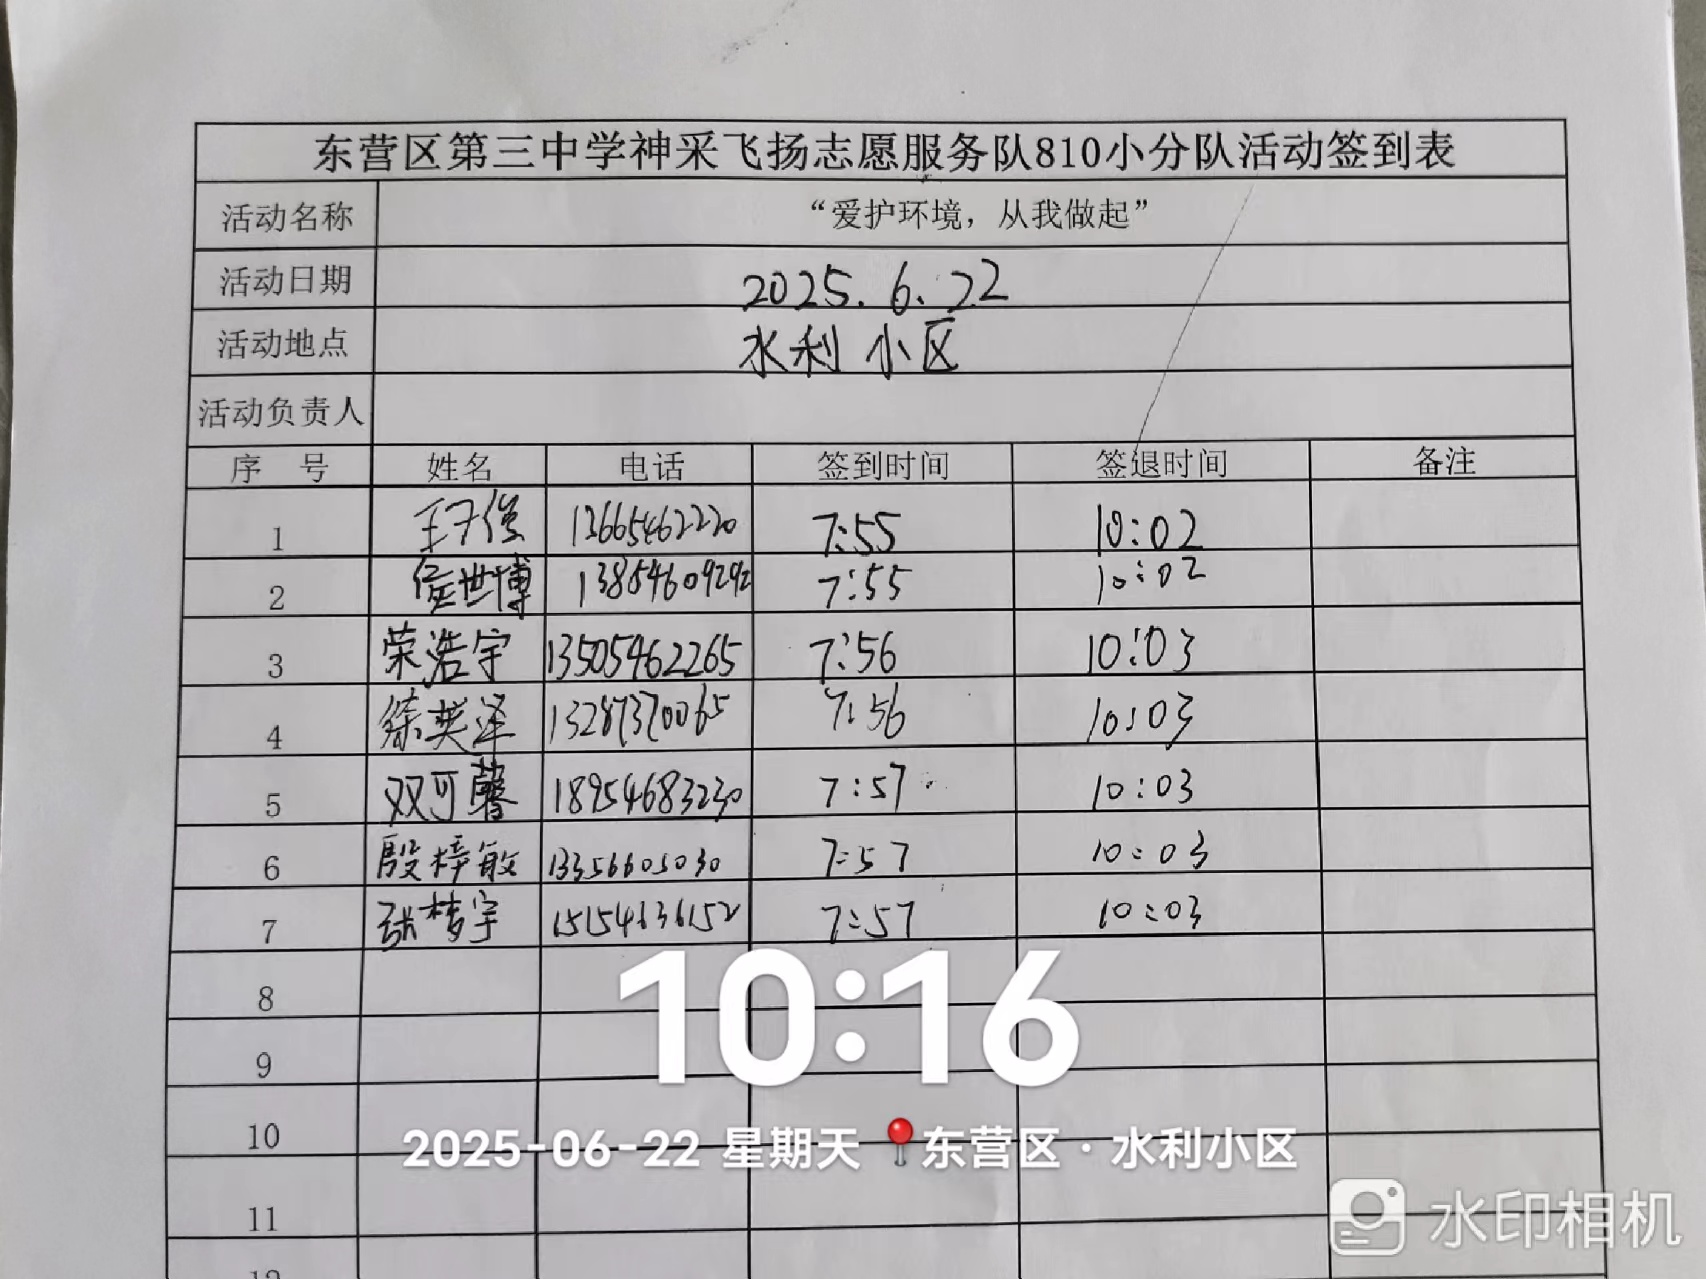 东营区第三中学神采飞扬志愿服务队810小分队活动签到表
活动名称 “爱护环境，从我做起”
活动日期 2025.6.22
活动地点 水利小区
活动负责人
序 号 姓名 电话 签到时间 签退时间 备注
1 王子俊 13665462220 7:55 10:02
2 侯世博 13854609292 7:55 10:02
3 荣浩宇 13505462265 7:56 10:03
4 徐英泽 13287370065 7:56 10:03
5 双可馨 18954683230 7:57 10:03
6 殷梓敏 13356605030 7:57 10:03
7 张梦宇 15154636152 7:57 10:03
8
9
10
11
10:16
2025-06-22 星期天 东营区·水利小区
水印相机